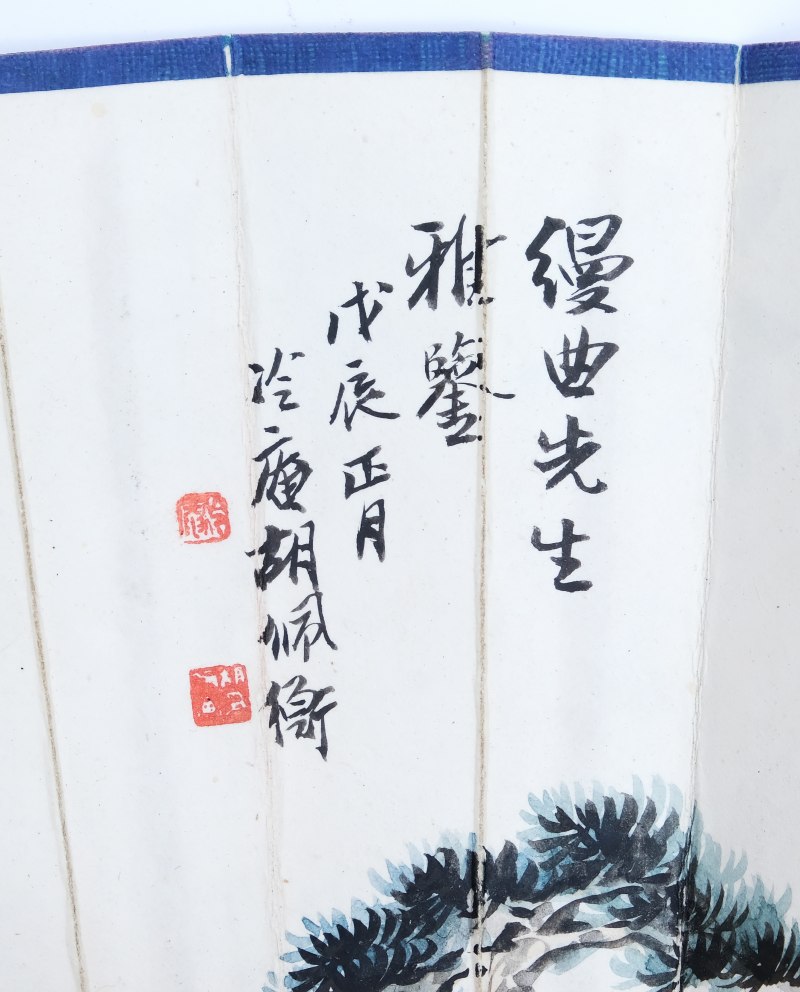 缦曲先生
雅鑒
戊辰正月
冷庵胡佩衡